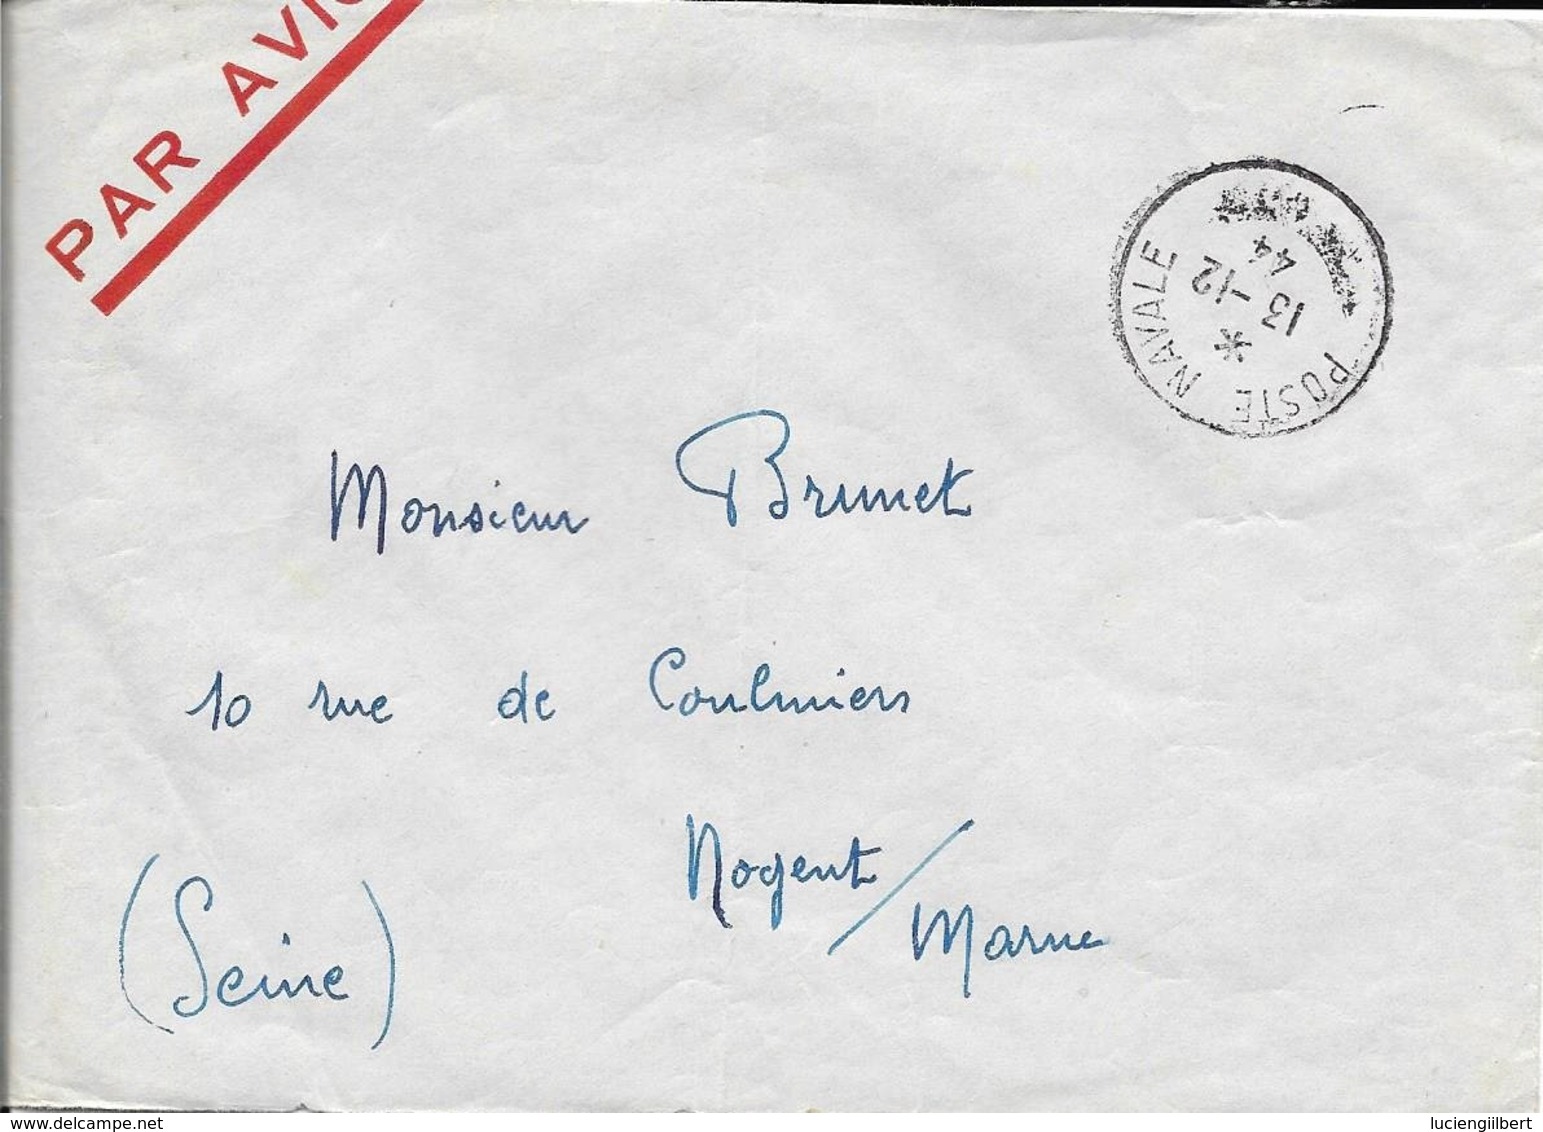 PAR AVIO
POSTE NAVALE
13-12
44
Monsieur Brunet
10 rue de Coulmiers
Nogent/Marne
(Seine)
www.delcampe.net
luciengilbert